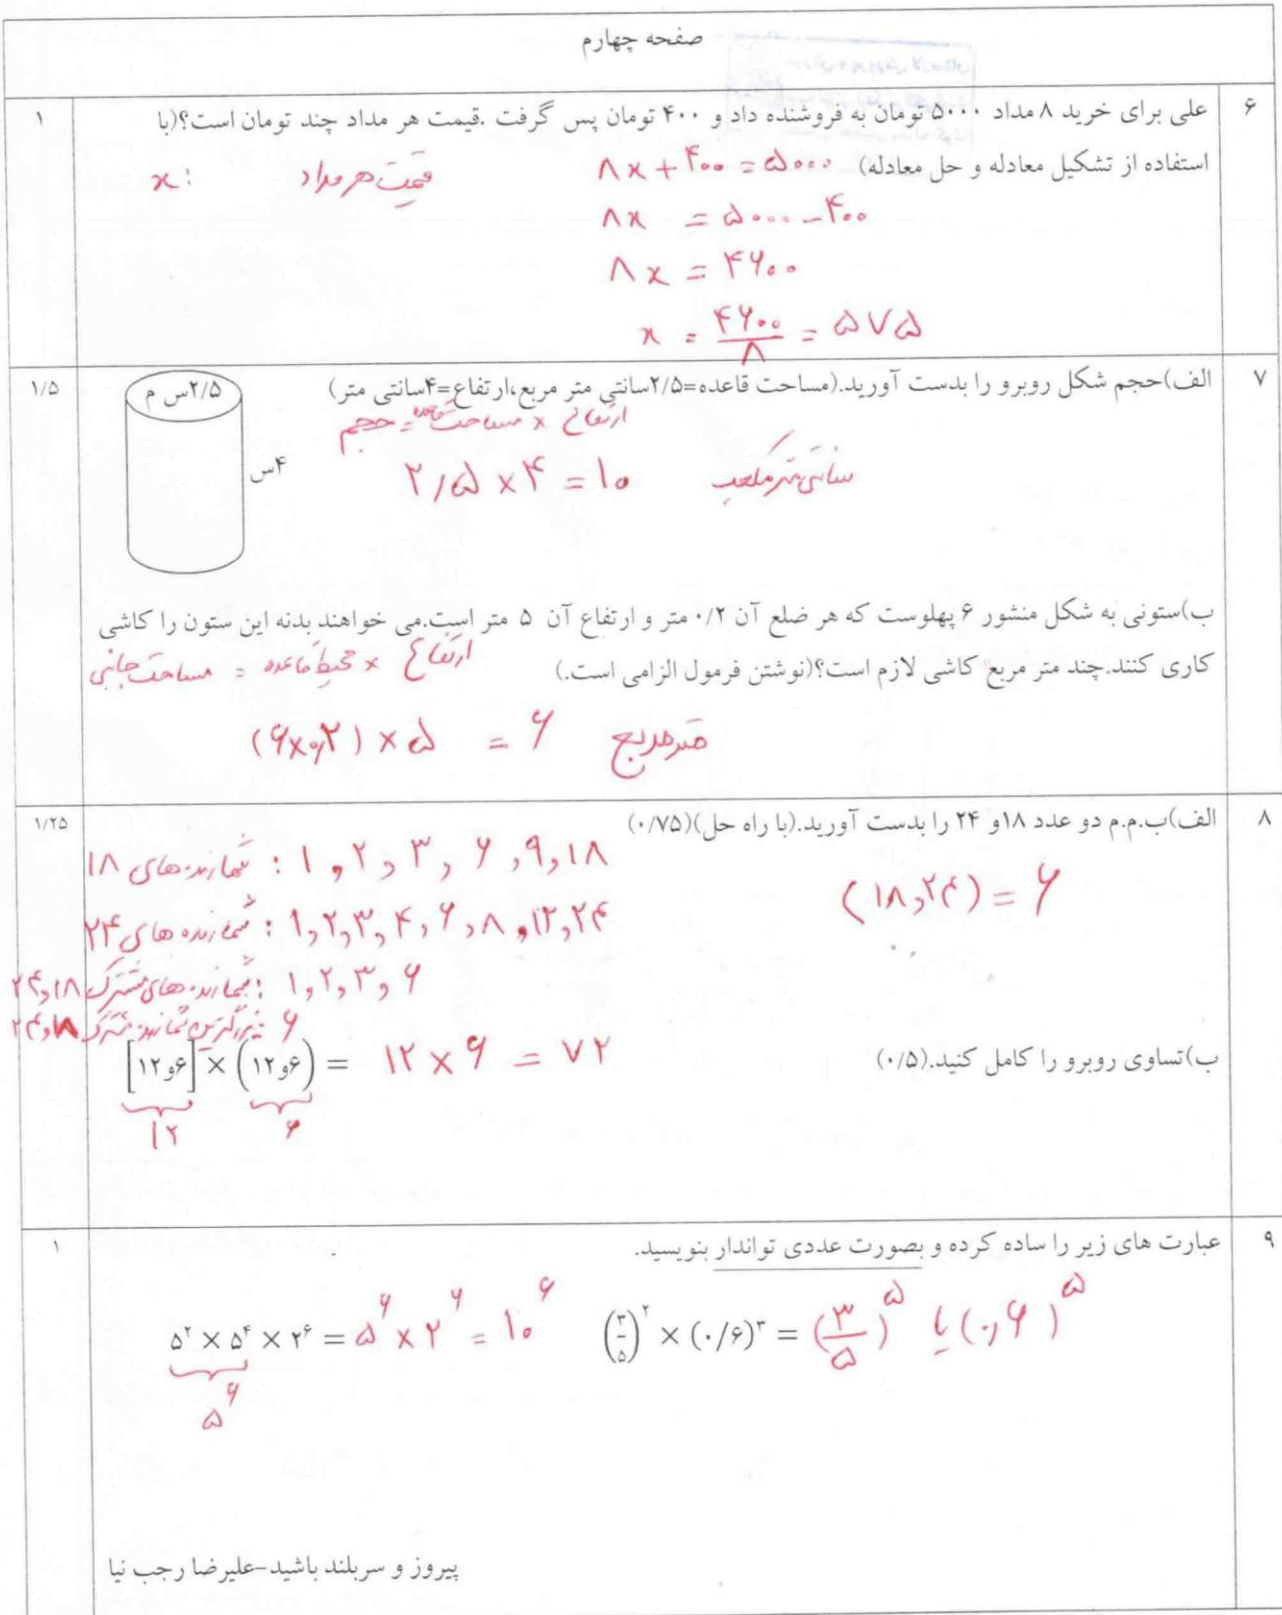 صفحه چهارم
۶
علی برای خرید ۸ مداد ۵۰۰۰ تومان به فروشنده داد و ۴۰۰ تومان پس گرفت .قیمت هر مداد چند تومان است؟(با
۱
استفاده از تشکیل معادله و حل معادله) ۸x + ۴۰۰ = ۵۰۰۰
قیمت هر مداد :x
۸x = ۵۰۰۰ - ۴۰۰
۸x = ۴۶۰۰
x = ۴۶۰۰/۸ = ۵۷۵
۷
الف)حجم شکل روبرو را بدست آورید.(مساحت قاعده=۲/۵سانتی متر مربع،ارتفاع=۴سانتی متر)
۱/۵
۲/۵س م
۴س
ارتفاع × مساحت قاعده = حجم
۲/۵ × ۴ = ۱۰ سانتی متر مکعب
ب)ستونی به شکل منشور ۶ پهلوست که هر ضلع آن ۰/۲ متر و ارتفاع آن ۵ متر است.می خواهند بدنه این ستون را کاشی
کاری کنند.چند متر مربع کاشی لازم است؟(نوشتن فرمول الزامی است.)
ارتفاع × محیط قاعده = مساحت جانبی
(۶×۰/۲) × ۵ = ۶ متر مربع
۸
الف)ب.م.م دو عدد ۱۸و ۲۴ را بدست آورید.(با راه حل)(۰/۷۵)
۱/۲۵
شمارنده های ۱۸ : ۱ و ۲ و ۳ و ۶ و ۹ و ۱۸
(۱۸ و ۲۴) = ۶
شمارنده های ۲۴ : ۱ و ۲ و ۳ و ۴ و ۶ و ۸ و ۱۲ و ۲۴
شمارنده های مشترک ۱۸ و ۲۴ : ۱ و ۲ و ۳ و ۶
بزرگترین شمارنده مشترک ۱۸ و ۲۴ : ۶
ب)تساوی روبرو را کامل کنید.(۰/۵)
[۱۲و۶] × (۱۲و۶) = ۱۲ × ۶ = ۷۲
۱۲ ۶
۹
عبارت های زیر را ساده کرده و بصورت عددی تواندار بنویسید.
۱
۵^۲ × ۵^۴ × ۲^۶ = ۵^۶ × ۲^۶ = ۱۰^۶
(۳/۵)^۲ × (۰/۶)^۳ = (۳/۵)^۵ یا (۰/۶)^۵
۵^۶
پیروز و سربلند باشید-علیرضا رجب نیا